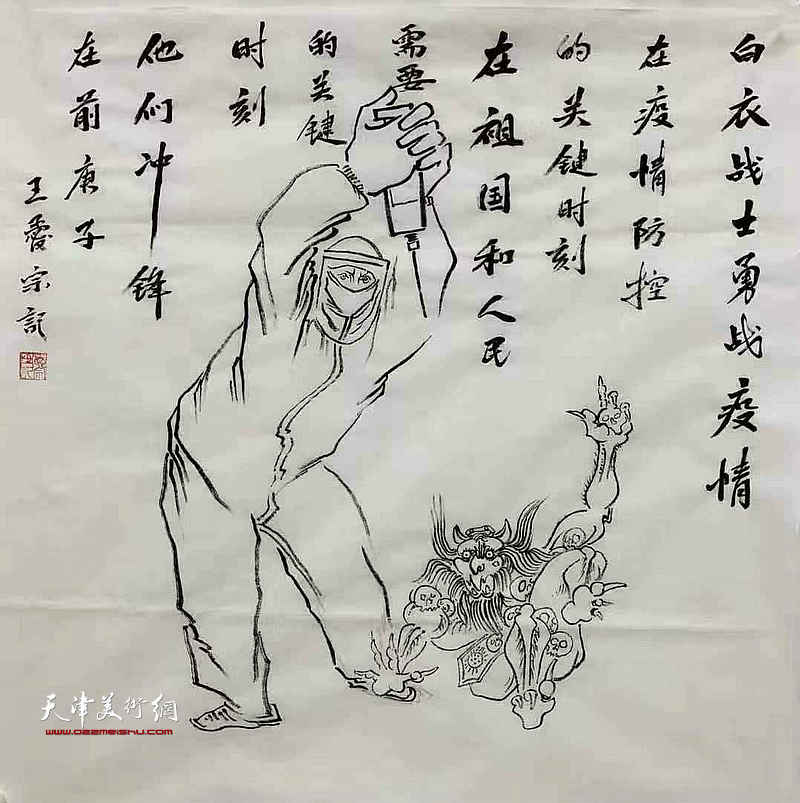 白衣战士勇战疫情
在疫情防控
的关键时刻
在祖国和人民
需要
的关键
时刻
他们冲锋
在前庚子
王爱宗记
言
天津美術網